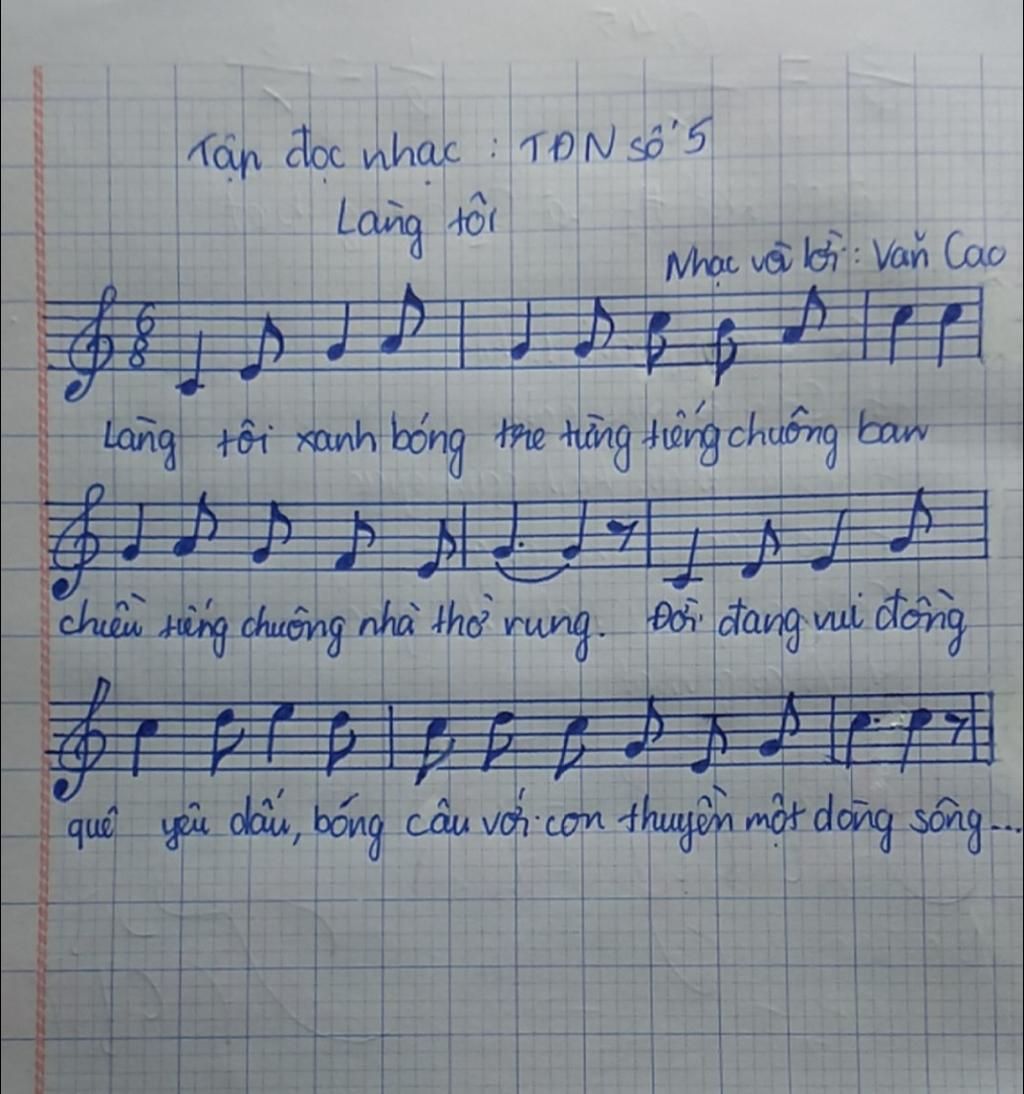 Tập đọc nhạc : TĐN số 5
Làng tôi
Nhạc và lời : Văn Cao
6
8
Làng tôi xanh bóng tre từng tiếng chuông ban
chiều tiếng chuông nhà thờ rung. Đời đang vui đồng
quê yêu dấu, bóng cau với con thuyền một dòng sông...